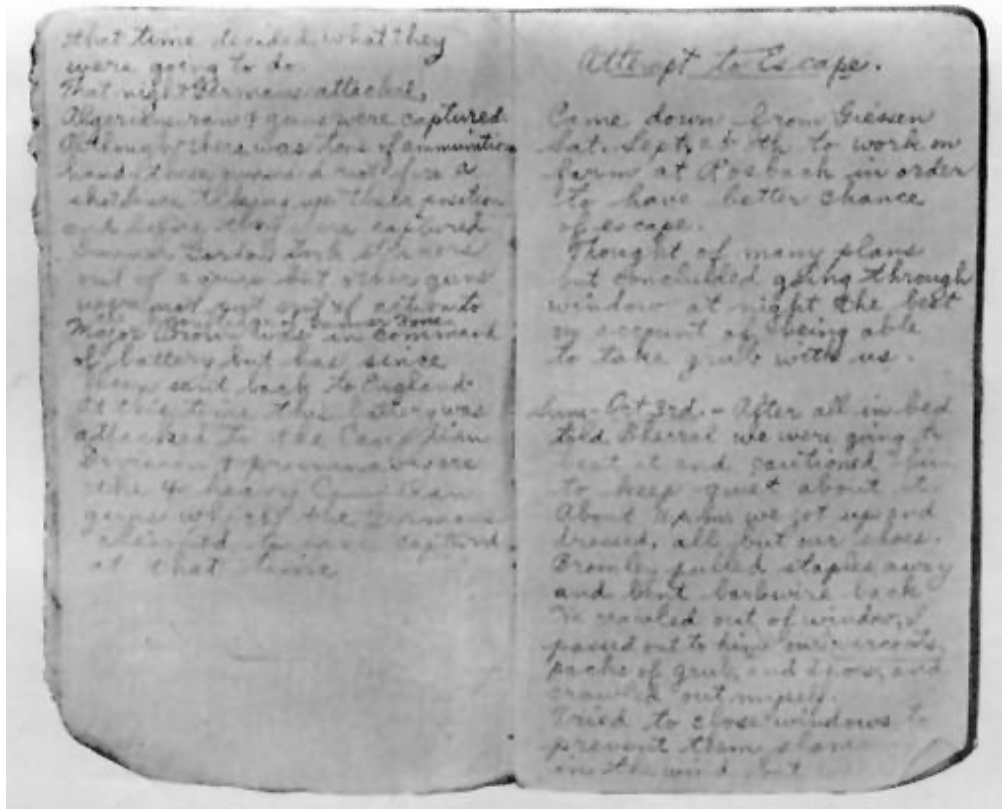 that time decided what they
were going to do.
That night Germans attacked,
Algeriens ran & guns were captured.
Although there was tons of ammunition
hand these guns did not fire a
shot
and before they were captured
Gunner Gordon took
out of 2 guns but other guns
were not put out of action
Major Brown was in command
of battery but has since
been sent back to England.
At this time this battery was
attached to the Canadian
Division &
the 4 heavy Canadian
guns which the Germans
claimed to have captured
at that time
Attempt to Escape.
Came down from Giessen
Sat. Sept. 25th to work on
farm at Rosbach in order
to have better chance
of escape.
Thought of many plans
but concluded going through
window at night the best
on account of being able
to take grub with us.
Sun. Oct 3rd. - After all in bed
told we were going to
beat it and cautioned him
to keep quiet about it.
About p.m. we got up and
dressed, all but our shoes.
Bromley pulled staples away
and bent barbwire back
He crawled out of window, I
passed out to him our overcoats,
packs of grub, and shoes, and
crawled out myself.
Tried to close windows to
prevent them
in the wind but